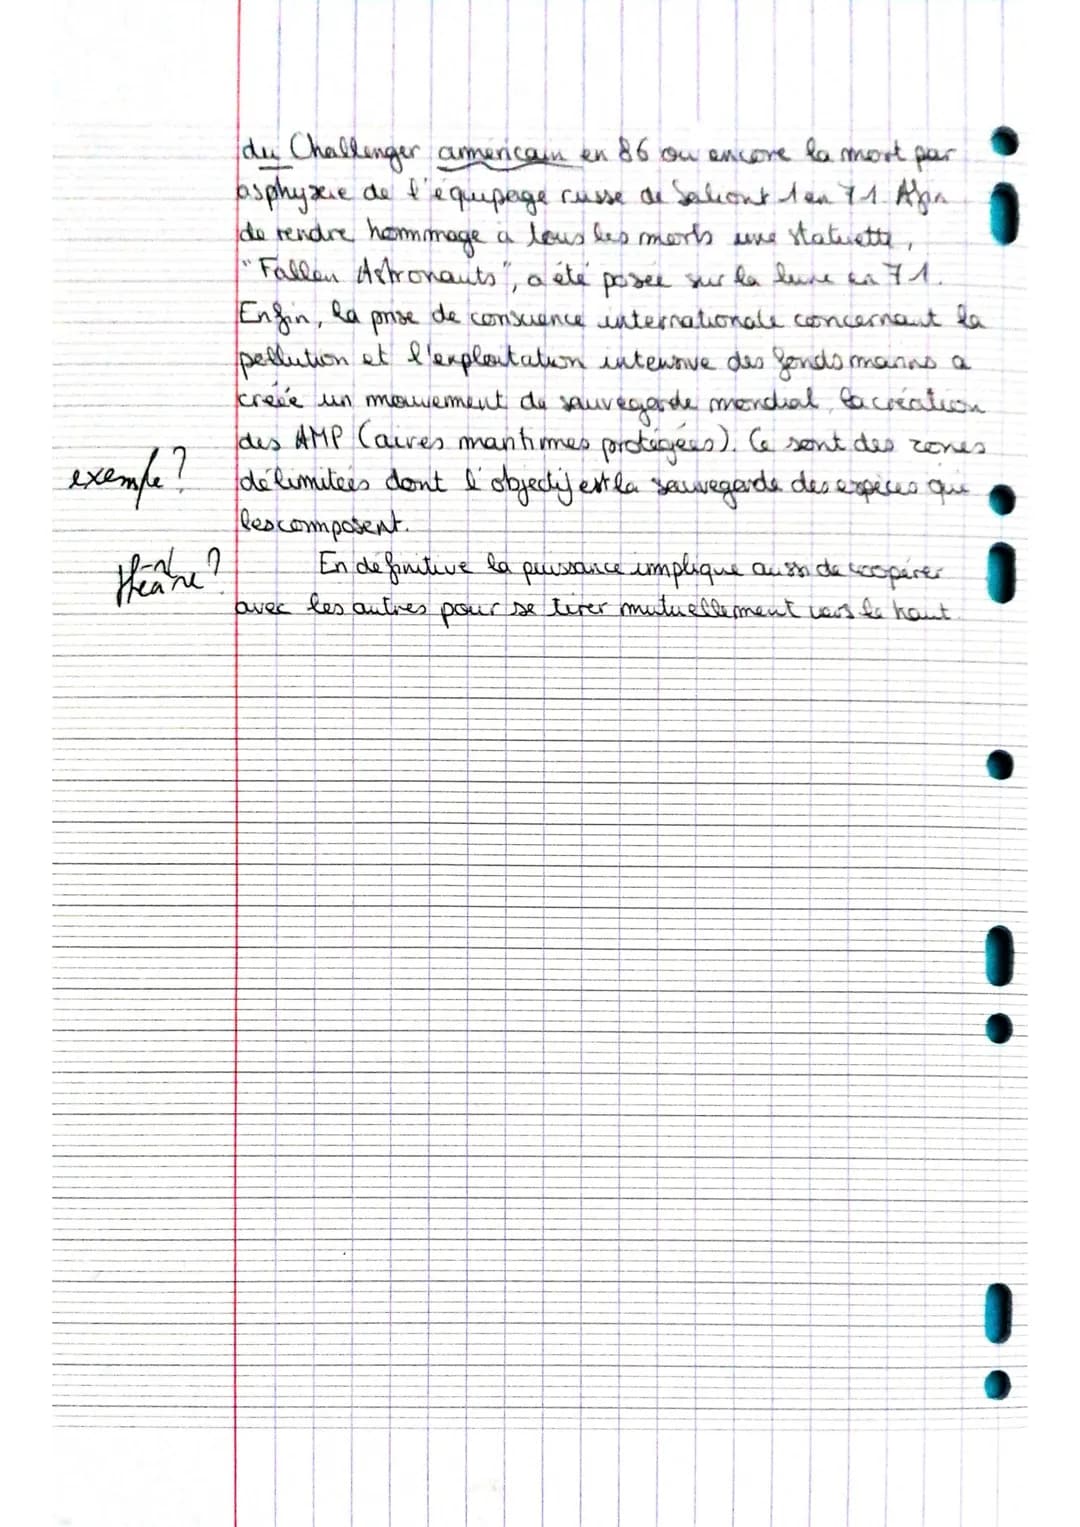 du Challenger américain en 86 ou encore la mort par
asphyxie de l'équipage russe de Saliout 1 en 71. Afin
de rendre hommage a tous les morts une statuette,
"Fallen Astronauts", a été posée sur la lune en 71.
Enfin, la prise de conscience internationale concernant la
pollution et l'exploitation intensive des fonds marins a
créée un mouvement de sauvegarde mondial, la création
des AMP (aires maritimes protégées). Ce sont des zones
exemple? délimitées dont l'objectif est la sauvegarde des espèces qui
les composent.
théâtre? En définitive la puissance implique aussi de coopérer
avec les autres pour se tirer mutuellement vers le haut.